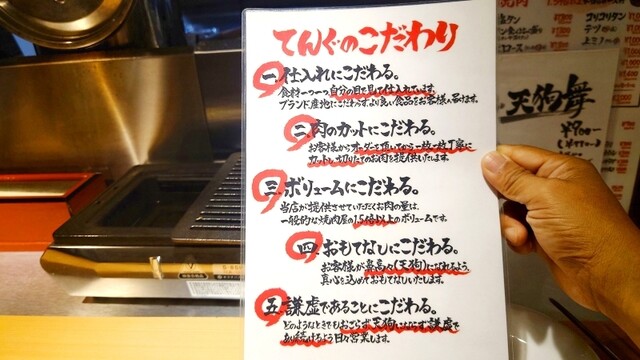 てんぐのこだわり
一 仕入れにこだわる。
食材一つ一つ、自分の目で見て仕入れています。
ブランド産地にこだわらず、より良い食品をお客様へ届けます。
二 肉のカットにこだわる。
お客様からオーダーを頂いてから一枚一枚丁寧に
カットし、切りたてのお肉を提供いたします。
三 ボリュームにこだわる。
当店が提供させていただくお肉の量は、
一般的な焼肉屋の1.5倍以上のボリュームです。
四 おもてなしにこだわる。
お客様が鼻高々(天狗)になれるよう
真心を込めておもてなしいたします。
五 謙虚であることにこだわる。
どのようなときでもおごらず、天狗にならず、謙虚で
あり続けるよう日々営業します。
天狗舞